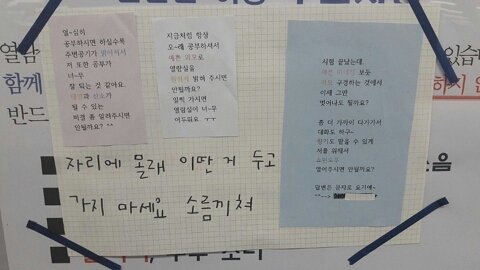 열~심히
공부하시면 하실수록
주변공기가 맑아져서
저 또한 공부가
너~무
잘 되는 것 같아요.
산소가
될 수 있는
비결 좀 알려주시면
안될까요? ^^
지금처럼 항상
오~래 공부하셔서
예쁜 외모로
열람실을
밝혀 주시면
안될까요?
일찍 가시면
열람실이 너~무
어두워요 ㅜㅜ
시험 끝났는데,
예쁜 보듯
구경하는 것에서
이제 그만
벗어나도 될까요?
좀 더 가까이 다가가서
대화도 하구~
향기도 맡을 수 있게
저를 위해서
열어주시면 안될까요?
답변은 문자로 요기에~
^^-->
자리에 몰래 이딴 거 두고
가지 마세요 소름끼쳐
열람
함께
반드
있습
하지 않
음